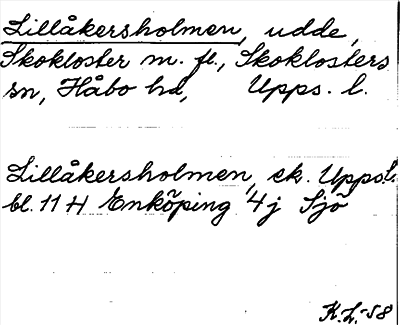 Lillåkersholmen, udde,
Skokloster m. fl., Skoklosters
sn, Håbo hd, Upps. l.
Lillåkersholmen, ek. Upps.l.
bl. 11 H Enköping 4j Sjö
K.L.-58